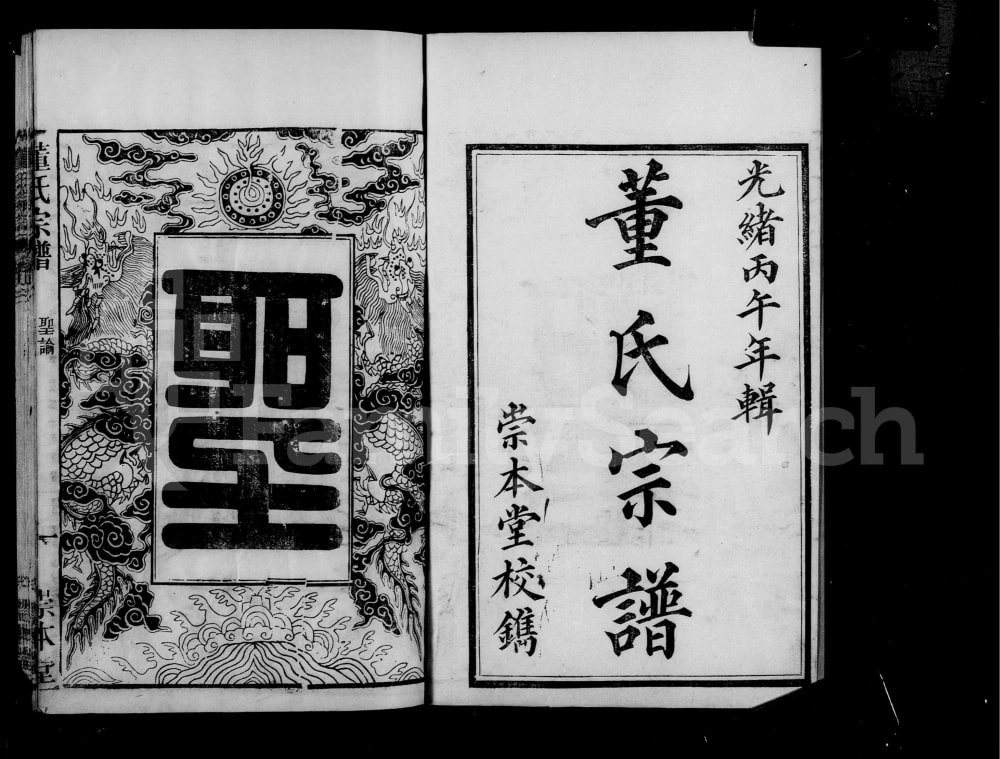 光緒丙午年輯
董氏宗譜
崇本堂校鐫
聖
董氏宗譜
聖諭
一
崇本堂
FamilySearch